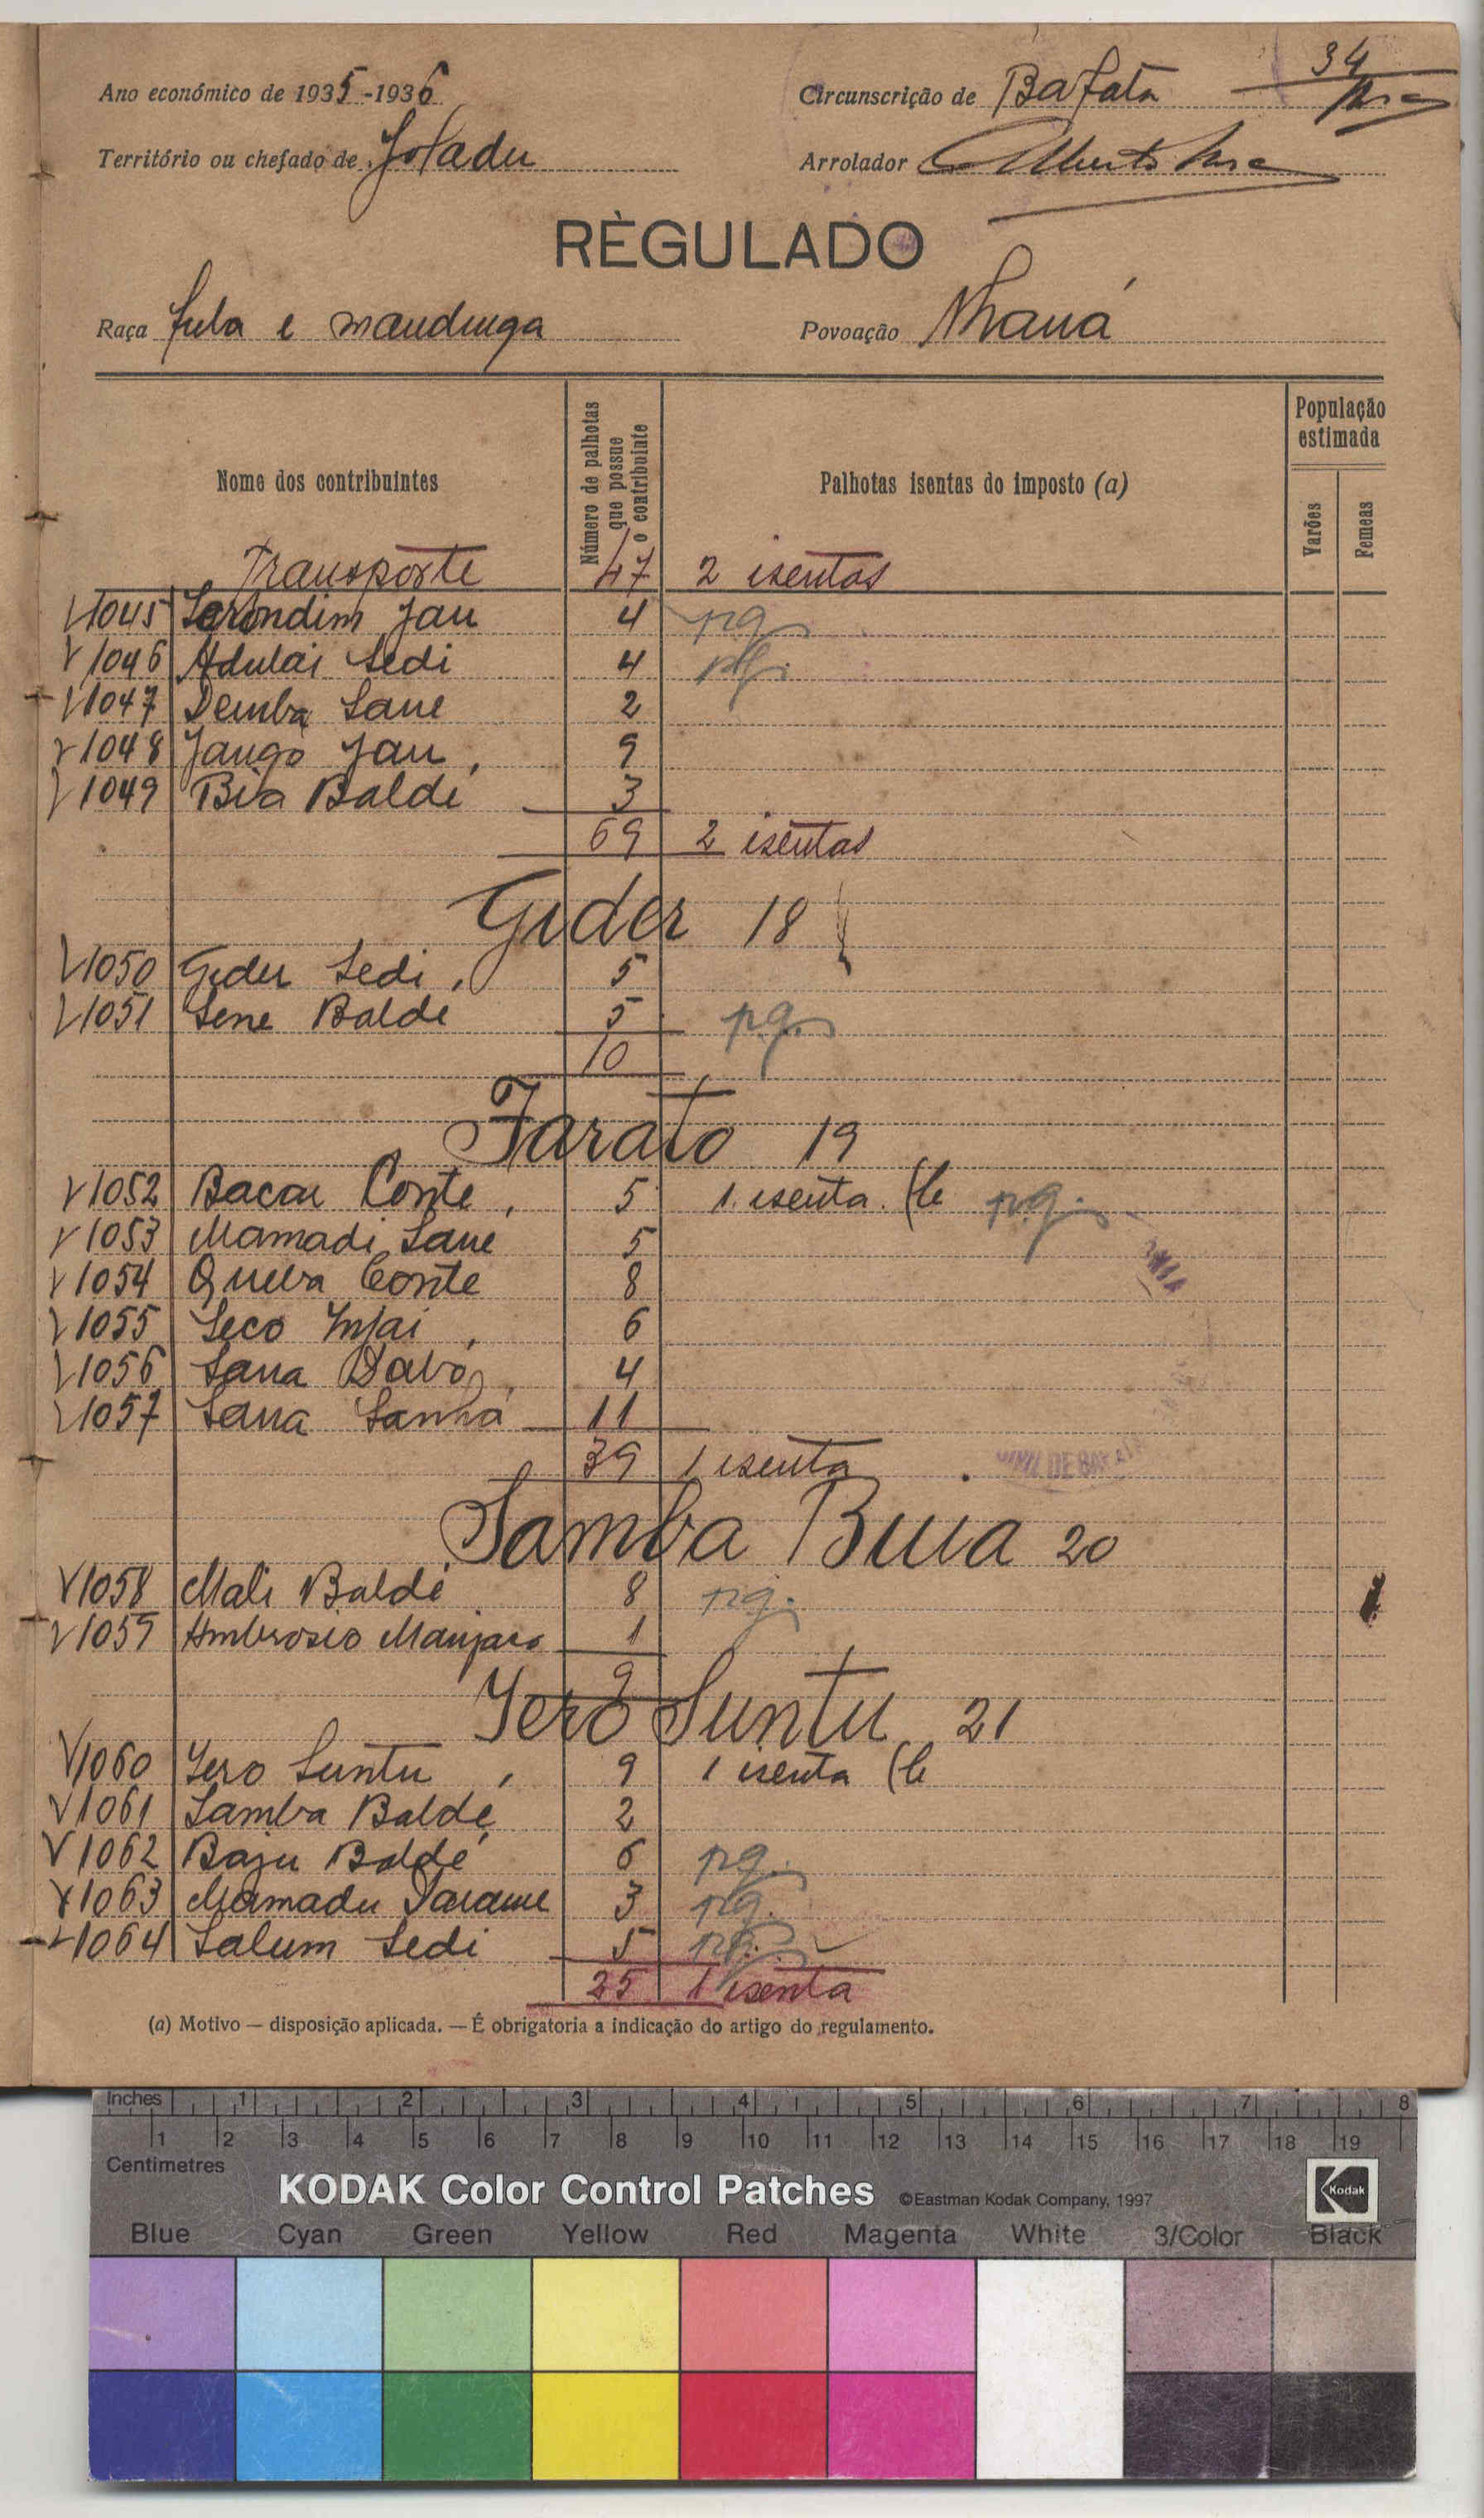 34
Ano económico de 1935-1936
Circunscrição de Bafata
Território ou chefado de Jofadu
Arrolador Alberto
RÈGULADO
Raça fula e mandinga
Povoação Nhaná
Nome dos contribuintes
Número de palhotas que possue o contribuinte
Palhotas isentas do imposto (a)
População estimada
Varões
Femeas
Transporte 47 2 isentas
1045 Sarondim Jau 4 pg
1046 Adulai Sedi 4 pg.
1047 Demba Sane 2
1048 Jango Jau, 9
1049 Bia Baldé 3
69 2 isentas
Gider 18
1050 Gider Sedi, 5
1051 Sene Baldé 5 pg.
10
Farato 19
1052 Bacar Conte, 5 1 isenta (le pg.
1053 Mamadi Sane 5
1054 Queba Conte 8
1055 Seco Injai, 6
1056 Sana Dabó, 4
1057 Sana Sanhá 11
39 1 isenta
CIVIL DE BAFATA
Samba Buia 20
1058 Mali Baldé 8 pg.
1059 Ambrosio Manjaco 1
9
Iero Suntu 21
1060 Iero Suntu, 9 1 isenta (le
1061 Samba Baldé 2
1062 Baju Baldé 6 pg.
1063 Mamadu Darame 3 pg.
1064 Salum Sedi 5 pg.
25 1 isenta
(a) Motivo — disposição aplicada. — É obrigatoria a indicação do artigo do regulamento.
Inches 1 2 3 4 5 6 7 8
1 2 3 4 5 6 7 8 9 10 11 12 13 14 15 16 17 18 19
Centimetres
KODAK Color Control Patches ©Eastman Kodak Company, 1997 Kodak
Blue Cyan Green Yellow Red Magenta White 3/Color Black